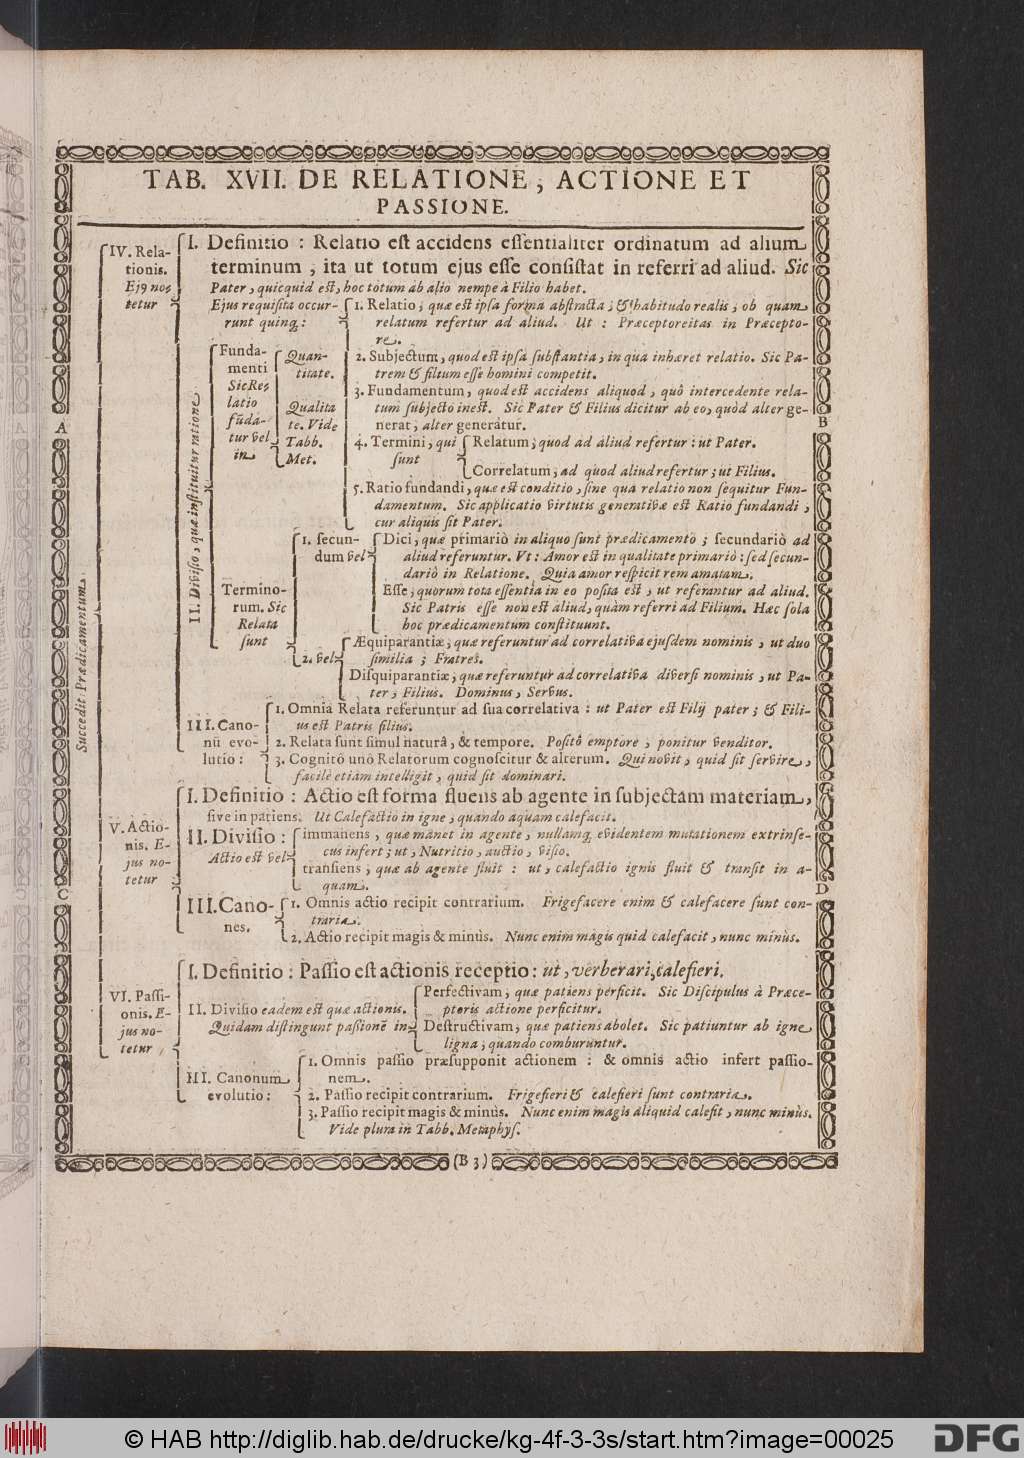 TAB. XVII. DE RELATIONE, ACTIONE ET
PASSIONE.
Succedit Prædicamentum
IV. Rela-
tionis.
Ejꝯ nos
tetur
I. Definitio : Relatio est accidens essentialiter ordinatum ad alium
terminum, ita ut totum ejus esse consistat in referri ad aliud. Sic
Pater, quicquid est, hoc totum ab alio nempe à Filio habet.
II. Divisio, quæ instituitur ratione
Ejus requisita occur-
runt quinq;:
1. Relatio; quæ est ipsa forma abstracta; & habitudo realis, ob quam
relatum refertur ad aliud. Ut : Præceptoreitas in Præcepto-
re.
2. Subjectum, quod est ipsa substantia, in quâ inhæret relatio. Sic Pa-
trem & filium esse homini competit.
3. Fundamentum, quod est accidens aliquod, quô intercedente rela-
tum subjecto inest. Sic Pater & Filius dicitur ab eo, quòd alter ge-
nerat, alter generâtur.
4. Termini, qui
sunt
Relatum; quod ad aliud refertur: ut Pater.
Correlatum; ad quod aliud refertur; ut Filius.
5. Ratio fundandi, quæ est conditio, sine quâ relatio non sequitur Fun-
damentum. Sic applicatio virtutis generativæ est Ratio fundandi,
cur aliquis sit Pater.
Funda-
menti
Sic Res
latio
fūda-
tur vel
in
Quan-
titate.
Qualita
te. Vide
Tabb.
Met.
Termino-
rum. Sic
Relata
sunt
1. secun-
dum vel
Dici, quæ primariò in aliquo sunt prædicamento; secundariò ad
aliud referuntur. Vt: Amor est in qualitate primariò: sed secun-
dariò in Relatione. Quia amor respicit rem amatam.
Esse; quorum tota essentia in eo posita est, ut referantur ad aliud.
Sic Patris esse non est aliud, quàm referri ad Filium. Hæc sola
hoc prædicamentum constituunt.
2. vel
Æquiparantiæ; quæ referuntur ad correlativa ejusdem nominis, ut duo
similia; Fratres.
Disquiparantiæ; quæ referuntur ad correlativa diversi nominis, ut Pa-
ter, Filius. Dominus, Servus.
III. Cano-
nū evo-
lutio :
1. Omnia Relata referuntur ad sua correlativa : ut Pater est Filij pater; & Fili-
us est Patris filius.
2. Relata sunt simul naturâ, & tempore. Positô emptore, ponitur venditor.
3. Cognitô unô Relatorum cognoscitur & alterum. Qui novit, quid sit servire,
facilè etiam intelligit, quid sit dominari.
V. Actio-
nis. E-
jus no-
tetur
I. Definitio : Actio est forma fluens ab agente in subjectam materiam,
sive in patiens. Ut Calefactio in igne, quando aquam calefacit.
II. Divisio :
Actio est vel
immanens, quæ manet in agente, nullamq; evidentem mutationem extrinse-
cus infert; ut, Nutritio, auctio, visio.
transiens; quæ ab agente fluit : ut, calefactio ignis fluit & transit in a-
quam.
III. Cano-
nes.
1. Omnis actio recipit contrarium. Frigefacere enim & calefacere sunt con-
traria.
2. Actio recipit magis & minùs. Nunc enim màgis quid calefacit, nunc minùs.
VI. Passi-
onis. E-
jus no-
tetur
I. Definitio : Passio est actionis receptio: ut, verberari, calefieri.
II. Divisio eadem est quæ actionis.
Quidam distingunt passionē in
Perfectivam; quæ patiens perficit. Sic Discipulus à Præce-
ptoris actione perficitur.
Destructivam; quæ patiens abolet. Sic patiuntur ab igne
ligna; quando comburuntur.
III. Canonum
evolutio :
1. Omnis passio præsupponit actionem : & omnis actio infert passio-
nem.
2. Passio recipit contrarium. Frigefieri & calefieri sunt contraria.
3. Passio recipit magis & minùs. Nunc enim magis aliquid calefit, nunc minùs.
Vide plura in Tabb. Metaphys.
A
B
C
D
(B 3)
© HAB http://diglib.hab.de/drucke/kg-4f-3-3s/start.htm?image=00025
DFG